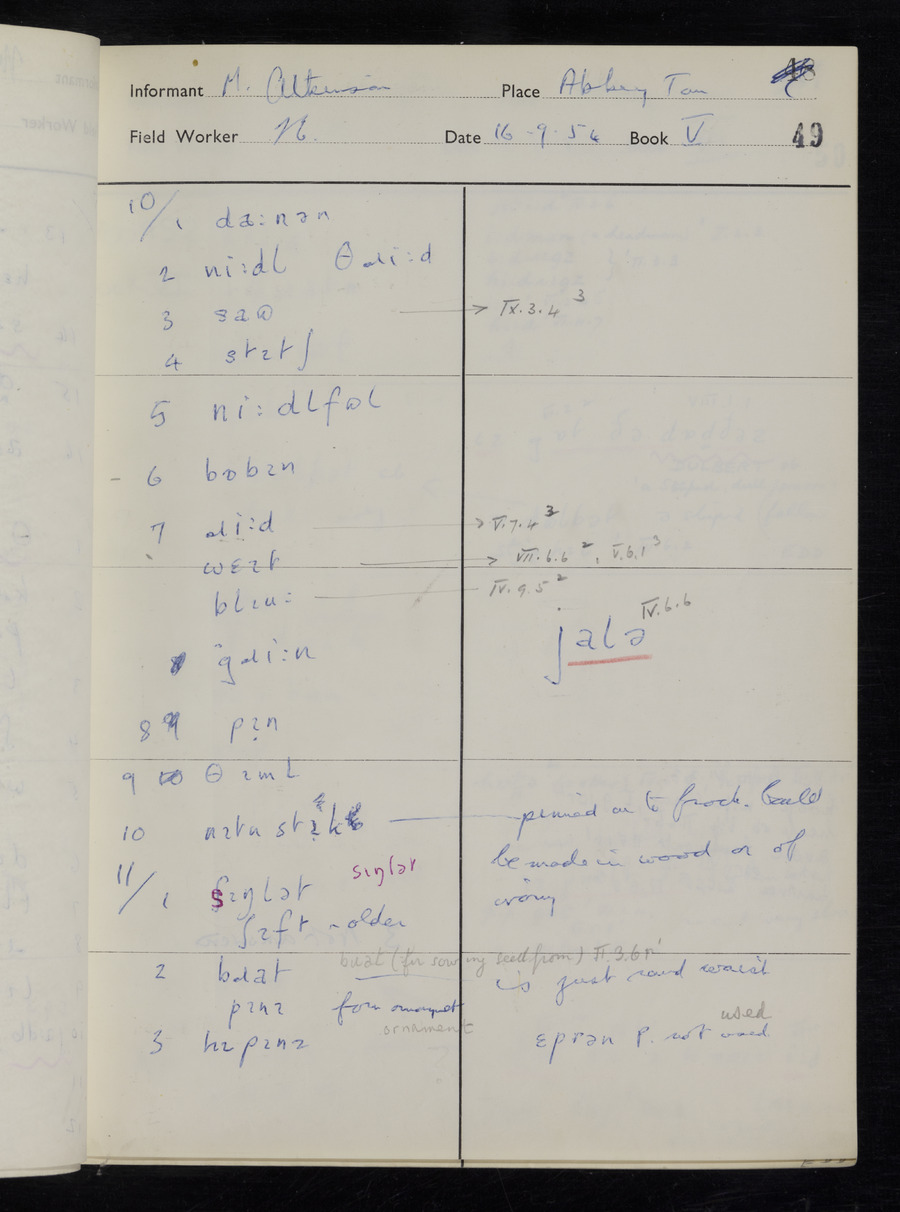 Informant M. Atkinson Place Abbey Tow
Field Worker N. Date 16-9-54 Book V 49
10/1 da:nən
2 ni:dl θɹi:d
3 saɷ → IX.3.4 3
4 stɪtʃ
5 ni:dlfɷl
- 6 bɒbɪn
7 ɹi:d → V.7.4 3
wɛɪt → VII.6.6 2, V.6.1 3
blɪu: IV.9.5 2
IV.6.6
ʃalə
gɹi:n
8 pɪn
9 θɪml
10 nɪtn stɪk pinned on to frock. Could
be made in wood or of
ivory
11/1 sɪŋlət sɪŋlət
ʃɪft - older
bɹat (for sowing seed from) II.3.6n
2 bɹat is just round waist
pɪnɪ for ornament
ornament
used
3 hɪpɪnɪ ɛprən p. not used